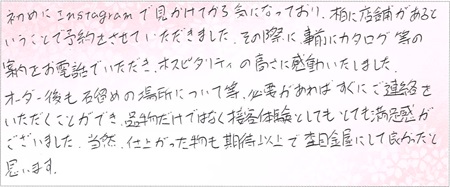 初めにInstagramで見かけてから気になっており、柏に店舗があると
いうことで予約をさせていただきました。その際に事前にカタログ等の
案内をお電話でいただき、ホスピタリティの高さに感動いたしました。
オーダー後も石留めの場所について等、必要があればすぐにご連絡を
いただくことができ、品物だけではなく接客体験としてもとても満足感が
ございました。当然、仕上がった物も期待以上で杢目金屋にして良かったと
思います。